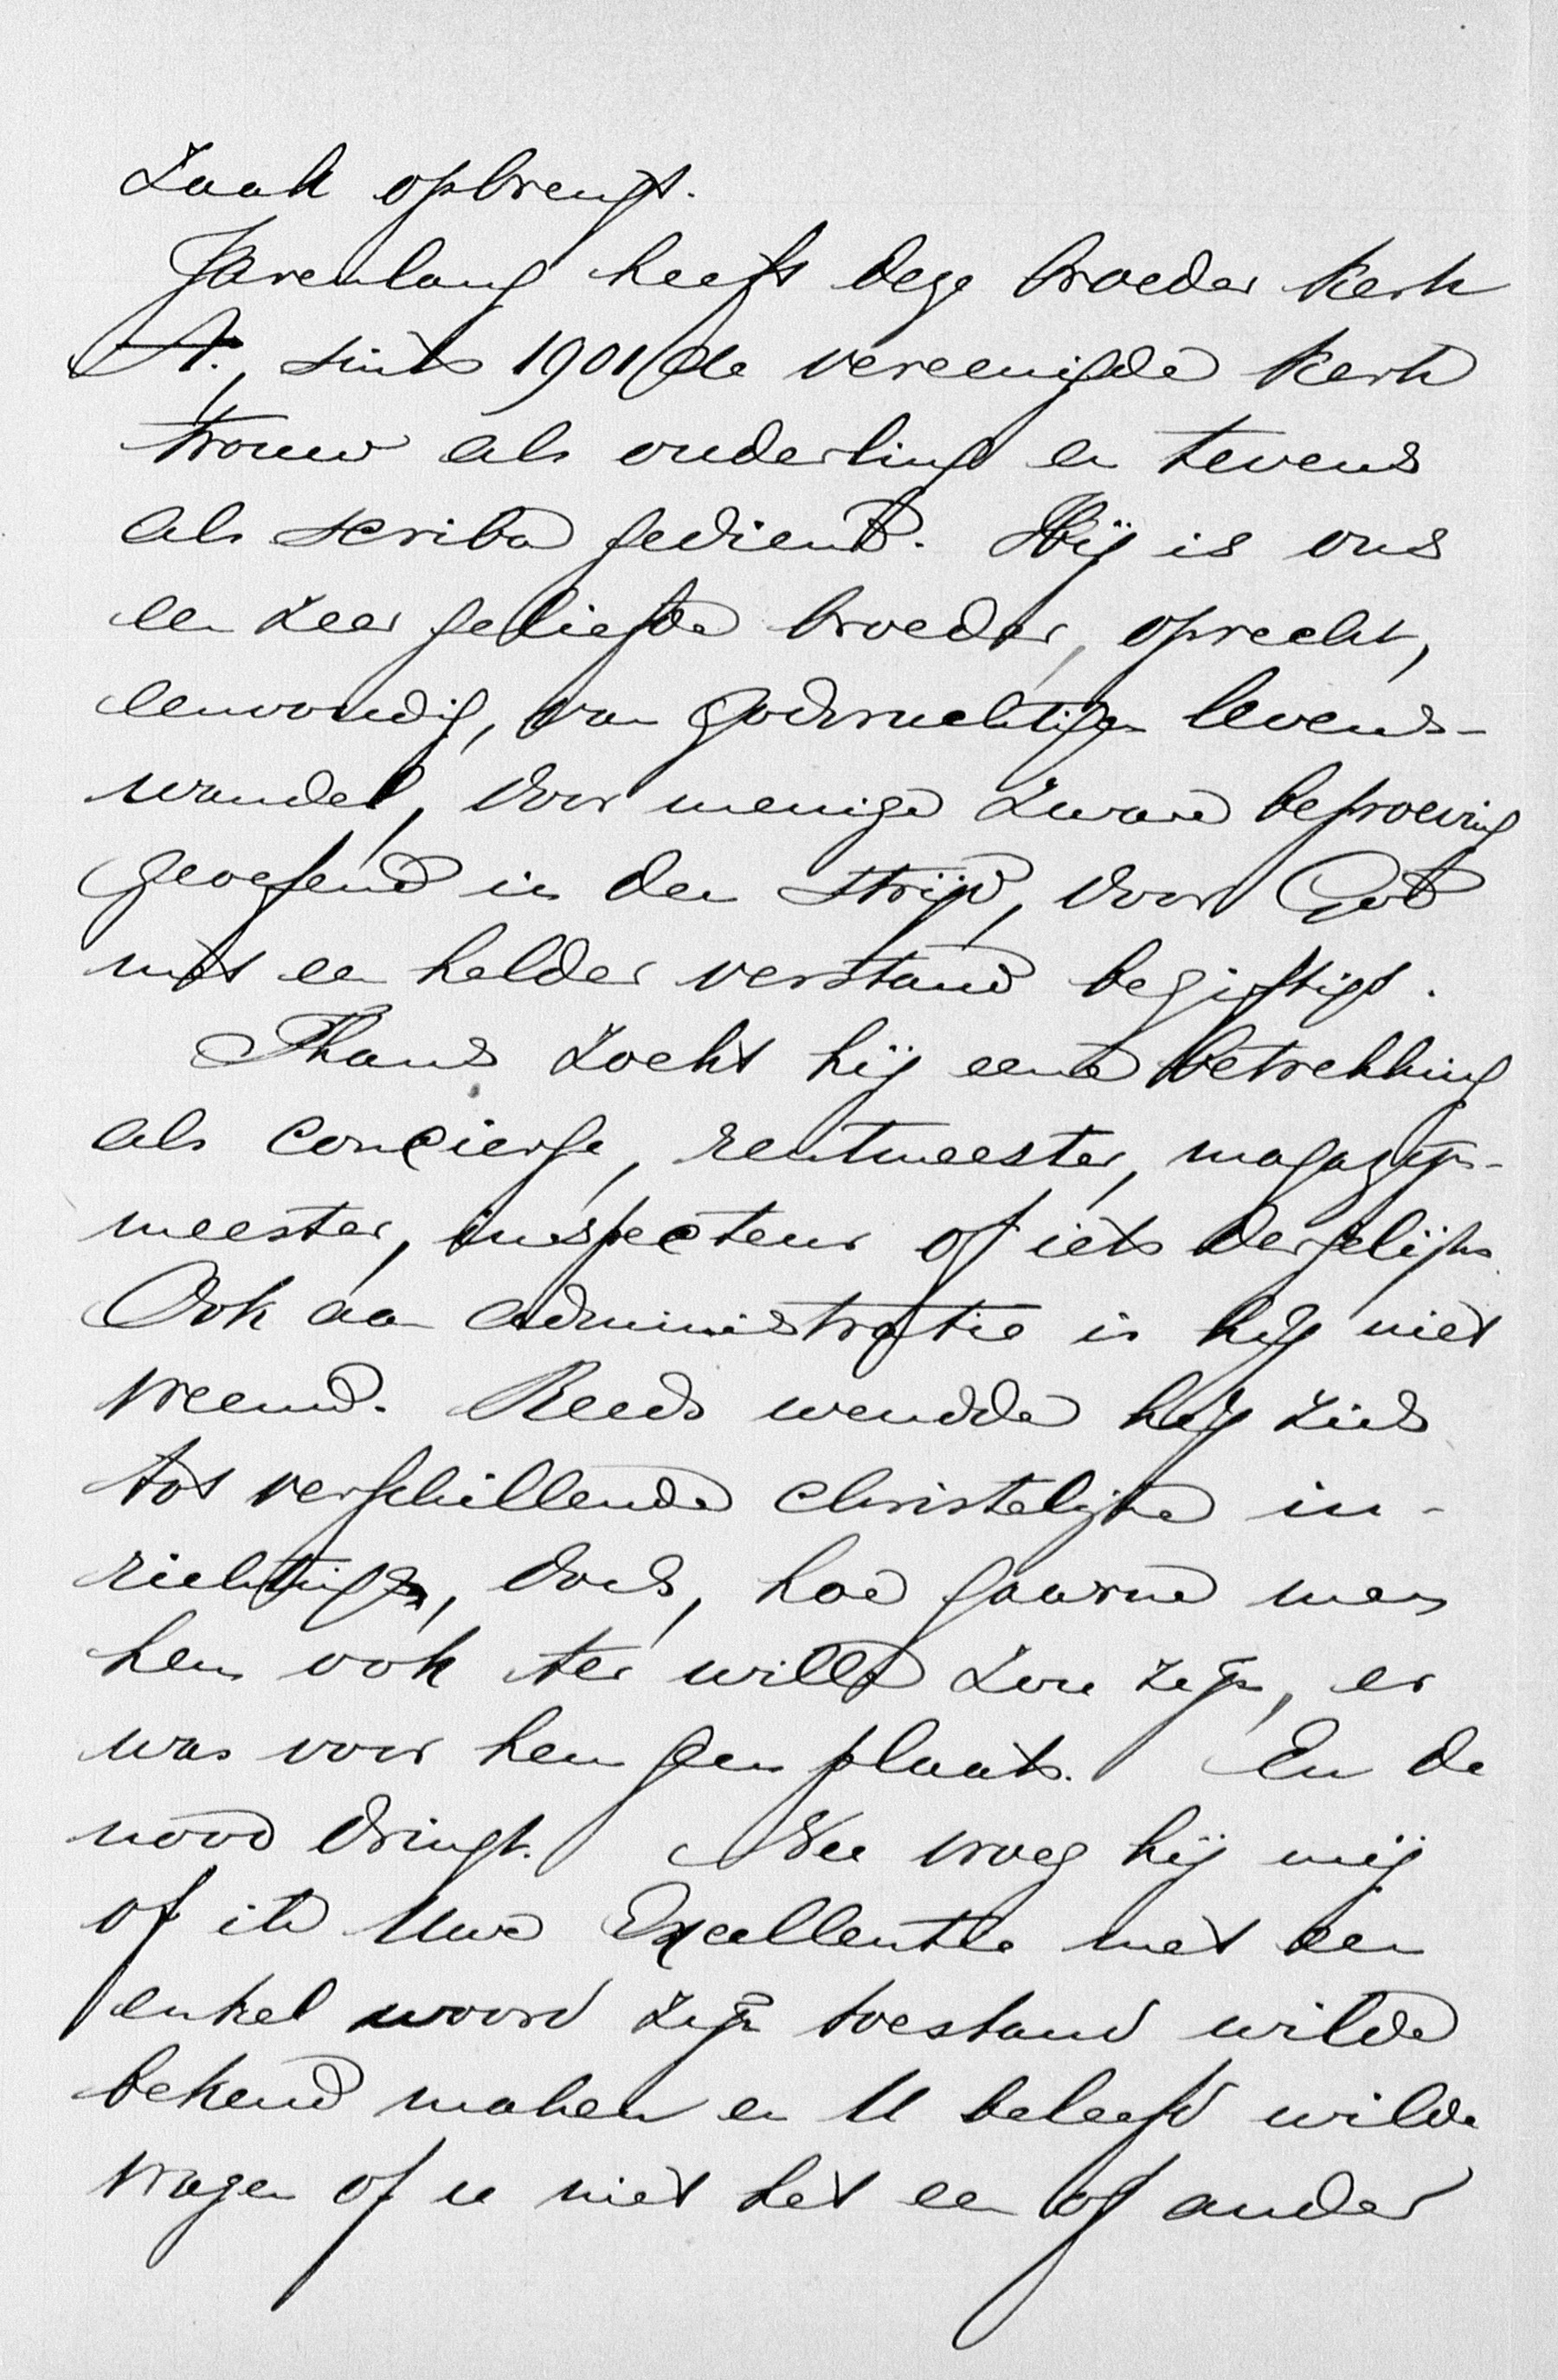 Zaak opbrengt.
Jarenlang heeft deze broeder Kerk
A., sints 1901 de vereenigde Kerk
trouw als ouderling en tevens
als scriba gediend. Hij is ons
een zeer geliefde broeder, oprecht,
eenvoudig, van godvruchtigen levens-
wandel, door menige zware beproeving
geoefend in den strijd, door God
met een helder verstand begiftigd.
Thans zoekt hij eene betrekking
als conciërge, rentmeester, magazijn-
meester, inspecteur of iets dergelijks.
Ook aan administratie is hij niet
vreemd. Reeds wendde hij zich
tot verschillende christelijke in-
richtingen, doch, hoe gaarne men
hem ook ter wille zou zijn, er
was voor hem geen plaats. En de
nood dringt. Nu vroeg hij mij
of ik Uwe Excellentie met een
enkel woord zijn toestand wilde
bekend maken en U beleefd wilde
vragen of u niet het een of ander